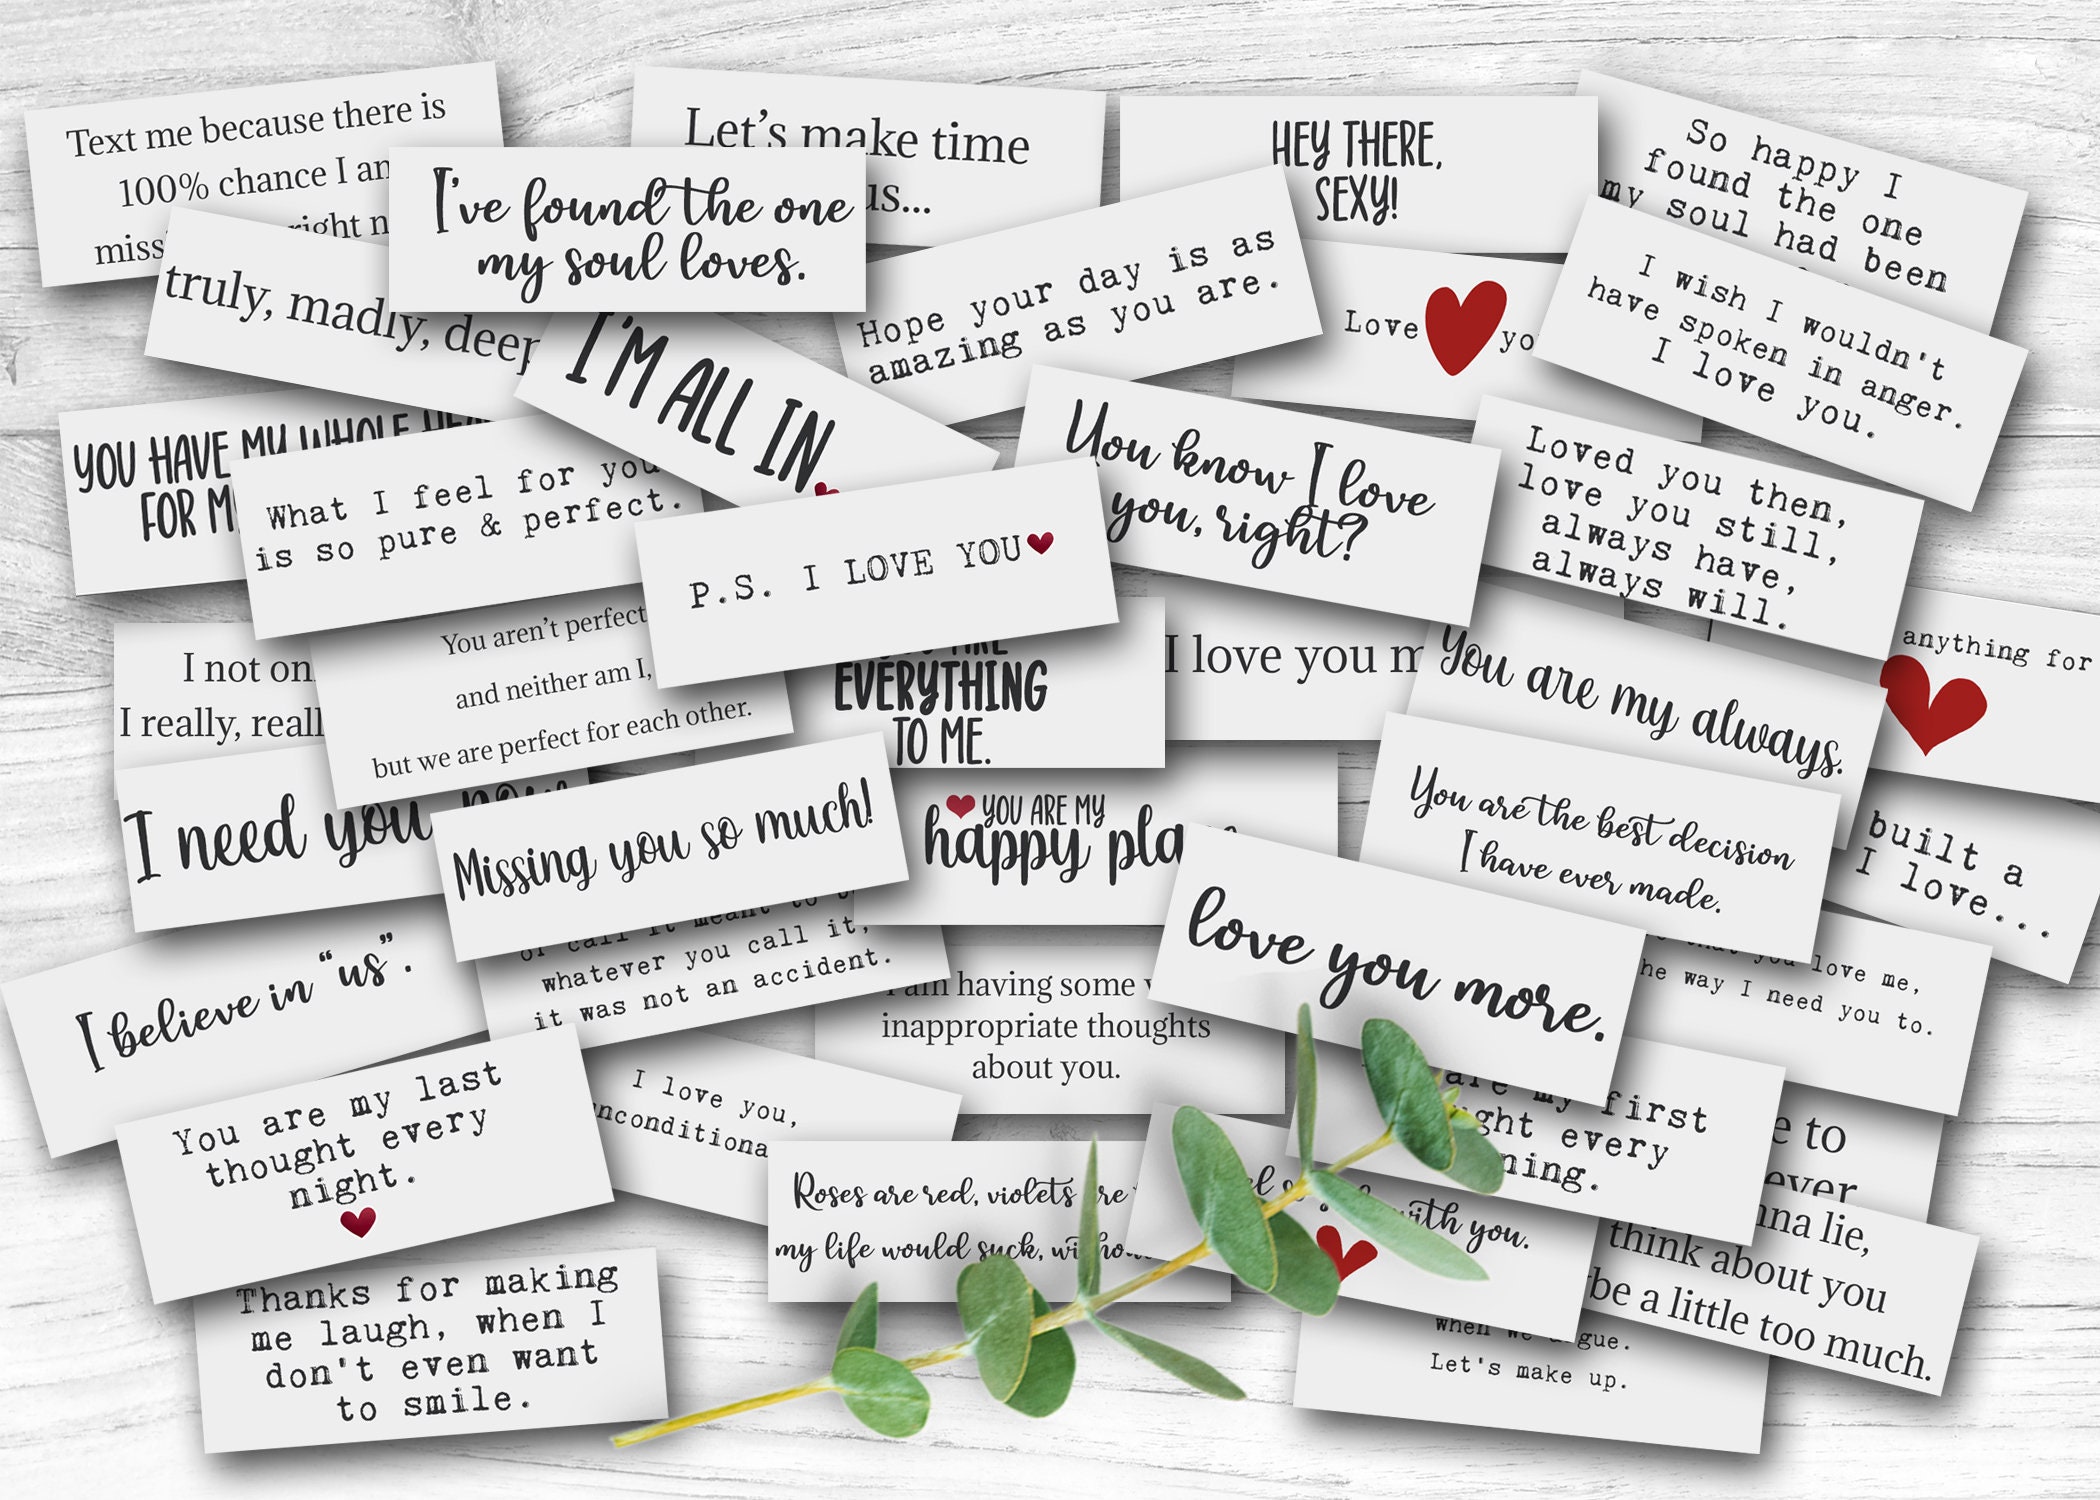 Text me because there is
100% chance I am
miss right n
Let's make time
us...
HEY THERE,
SEXY!
So happy I
found the one
my soul had been
I've found the one
my soul loves.
truly, madly, deep
Hope your day is as
amazing as you are.
Love yo
I wish I wouldn't
have spoken in anger.
I love you.
I'M ALL IN
YOU HAVE MY WHOLE HEA
FOR M
What I feel for you
is so pure & perfect.
P.S. I LOVE YOU
You know I love
you, right?
Loved you then,
love you still,
always have,
always will.
anything for
I not on
I really, reall
You aren't perfect
and neither am I,
but we are perfect for each other.
ARE
EVERYTHING
TO ME.
I love you m
You are my always.
I need you now
Missing you so much!
YOU ARE MY
happy pla
You are the best decision
I have ever made.
built a
I love...
love you more.
that you love me,
he way I need you to.
I believe in "us".
or call it meant to
whatever you call it,
it was not an accident.
I am having some
inappropriate thoughts
about you.
You are my last
thought every
night.
I love you,
unconditiona
are my first
ght every
ning.
e to
ever
Roses are red, violets are
my life would suck, witho
with you.
nna lie,
think about you
be a little too much.
Thanks for making
me laugh, when I
don't even want
to smile.
when we argue.
Let's make up.